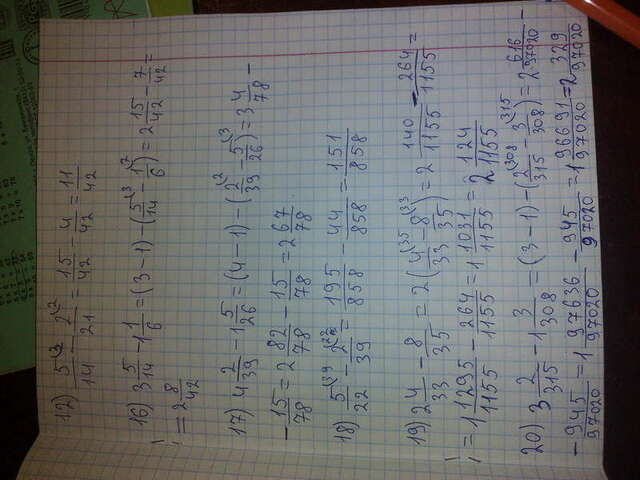 12) 5/14 (3 - 2/21 (2 = 15/42 - 4/42 = 11/42
16) 3 5/14 - 1 1/6 = (3-1) - (5/14 (3 - 1/6 (7) = 2 15/42 - 7/42 =
= 2 8/42
17) 4 2/39 - 1 5/26 = (4-1) - (2/39 (2 - 5/26 (3) = 3 4/78 -
- 15/78 = 2 82/78 - 15/78 = 2 67/78
18) 5/22 (39 - 2/39 (22 = 195/858 - 44/858 = 151/858
19) 2 4/33 - 8/35 = 2 (4/33 (35 - 8/35 (33) = 2 140/1155 - 264/1155 =
= 1 1295/1155 - 264/1155 = 1 1031/1155 = 2 124/1155
20) 3 2/315 - 1 3/308 = (3-1) - (2/315 (308 - 3/308 (315) = 2 616/97020 -
- 945/97020 = 1 97636/97020 - 945/97020 = 1 96691/97020 = 2 329/97020